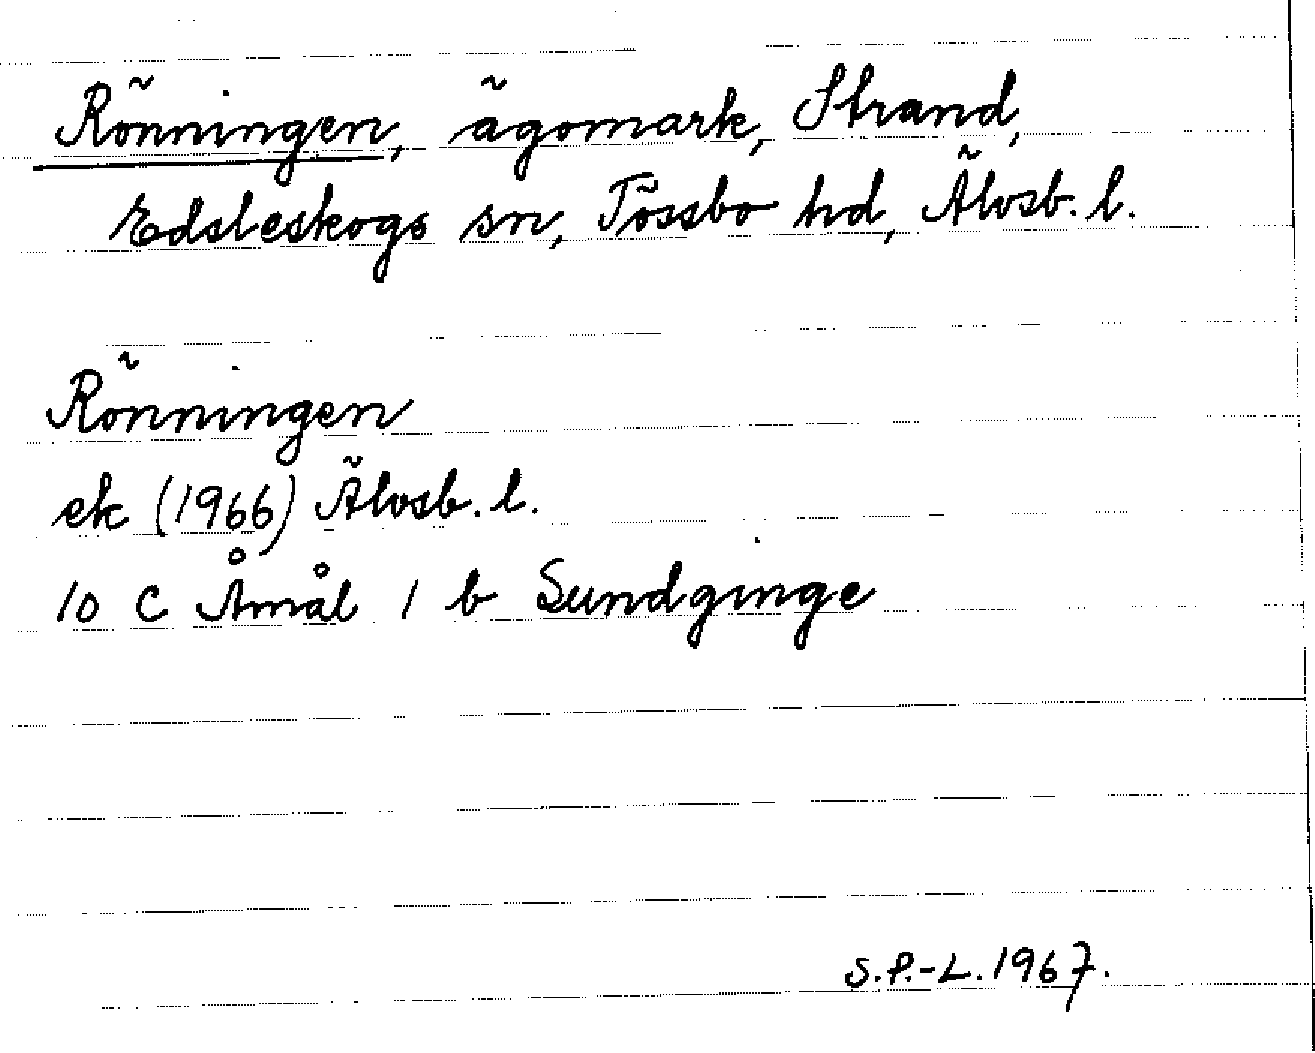 Rönningen, ägomark, Strand,
Edsleskogs sn, Tössbo hd, Älvsb. l.
Rönningen
ek (1966) Älvsb. l.
10 C Åmål 1 b Sundginge
S.P.-L. 1967.